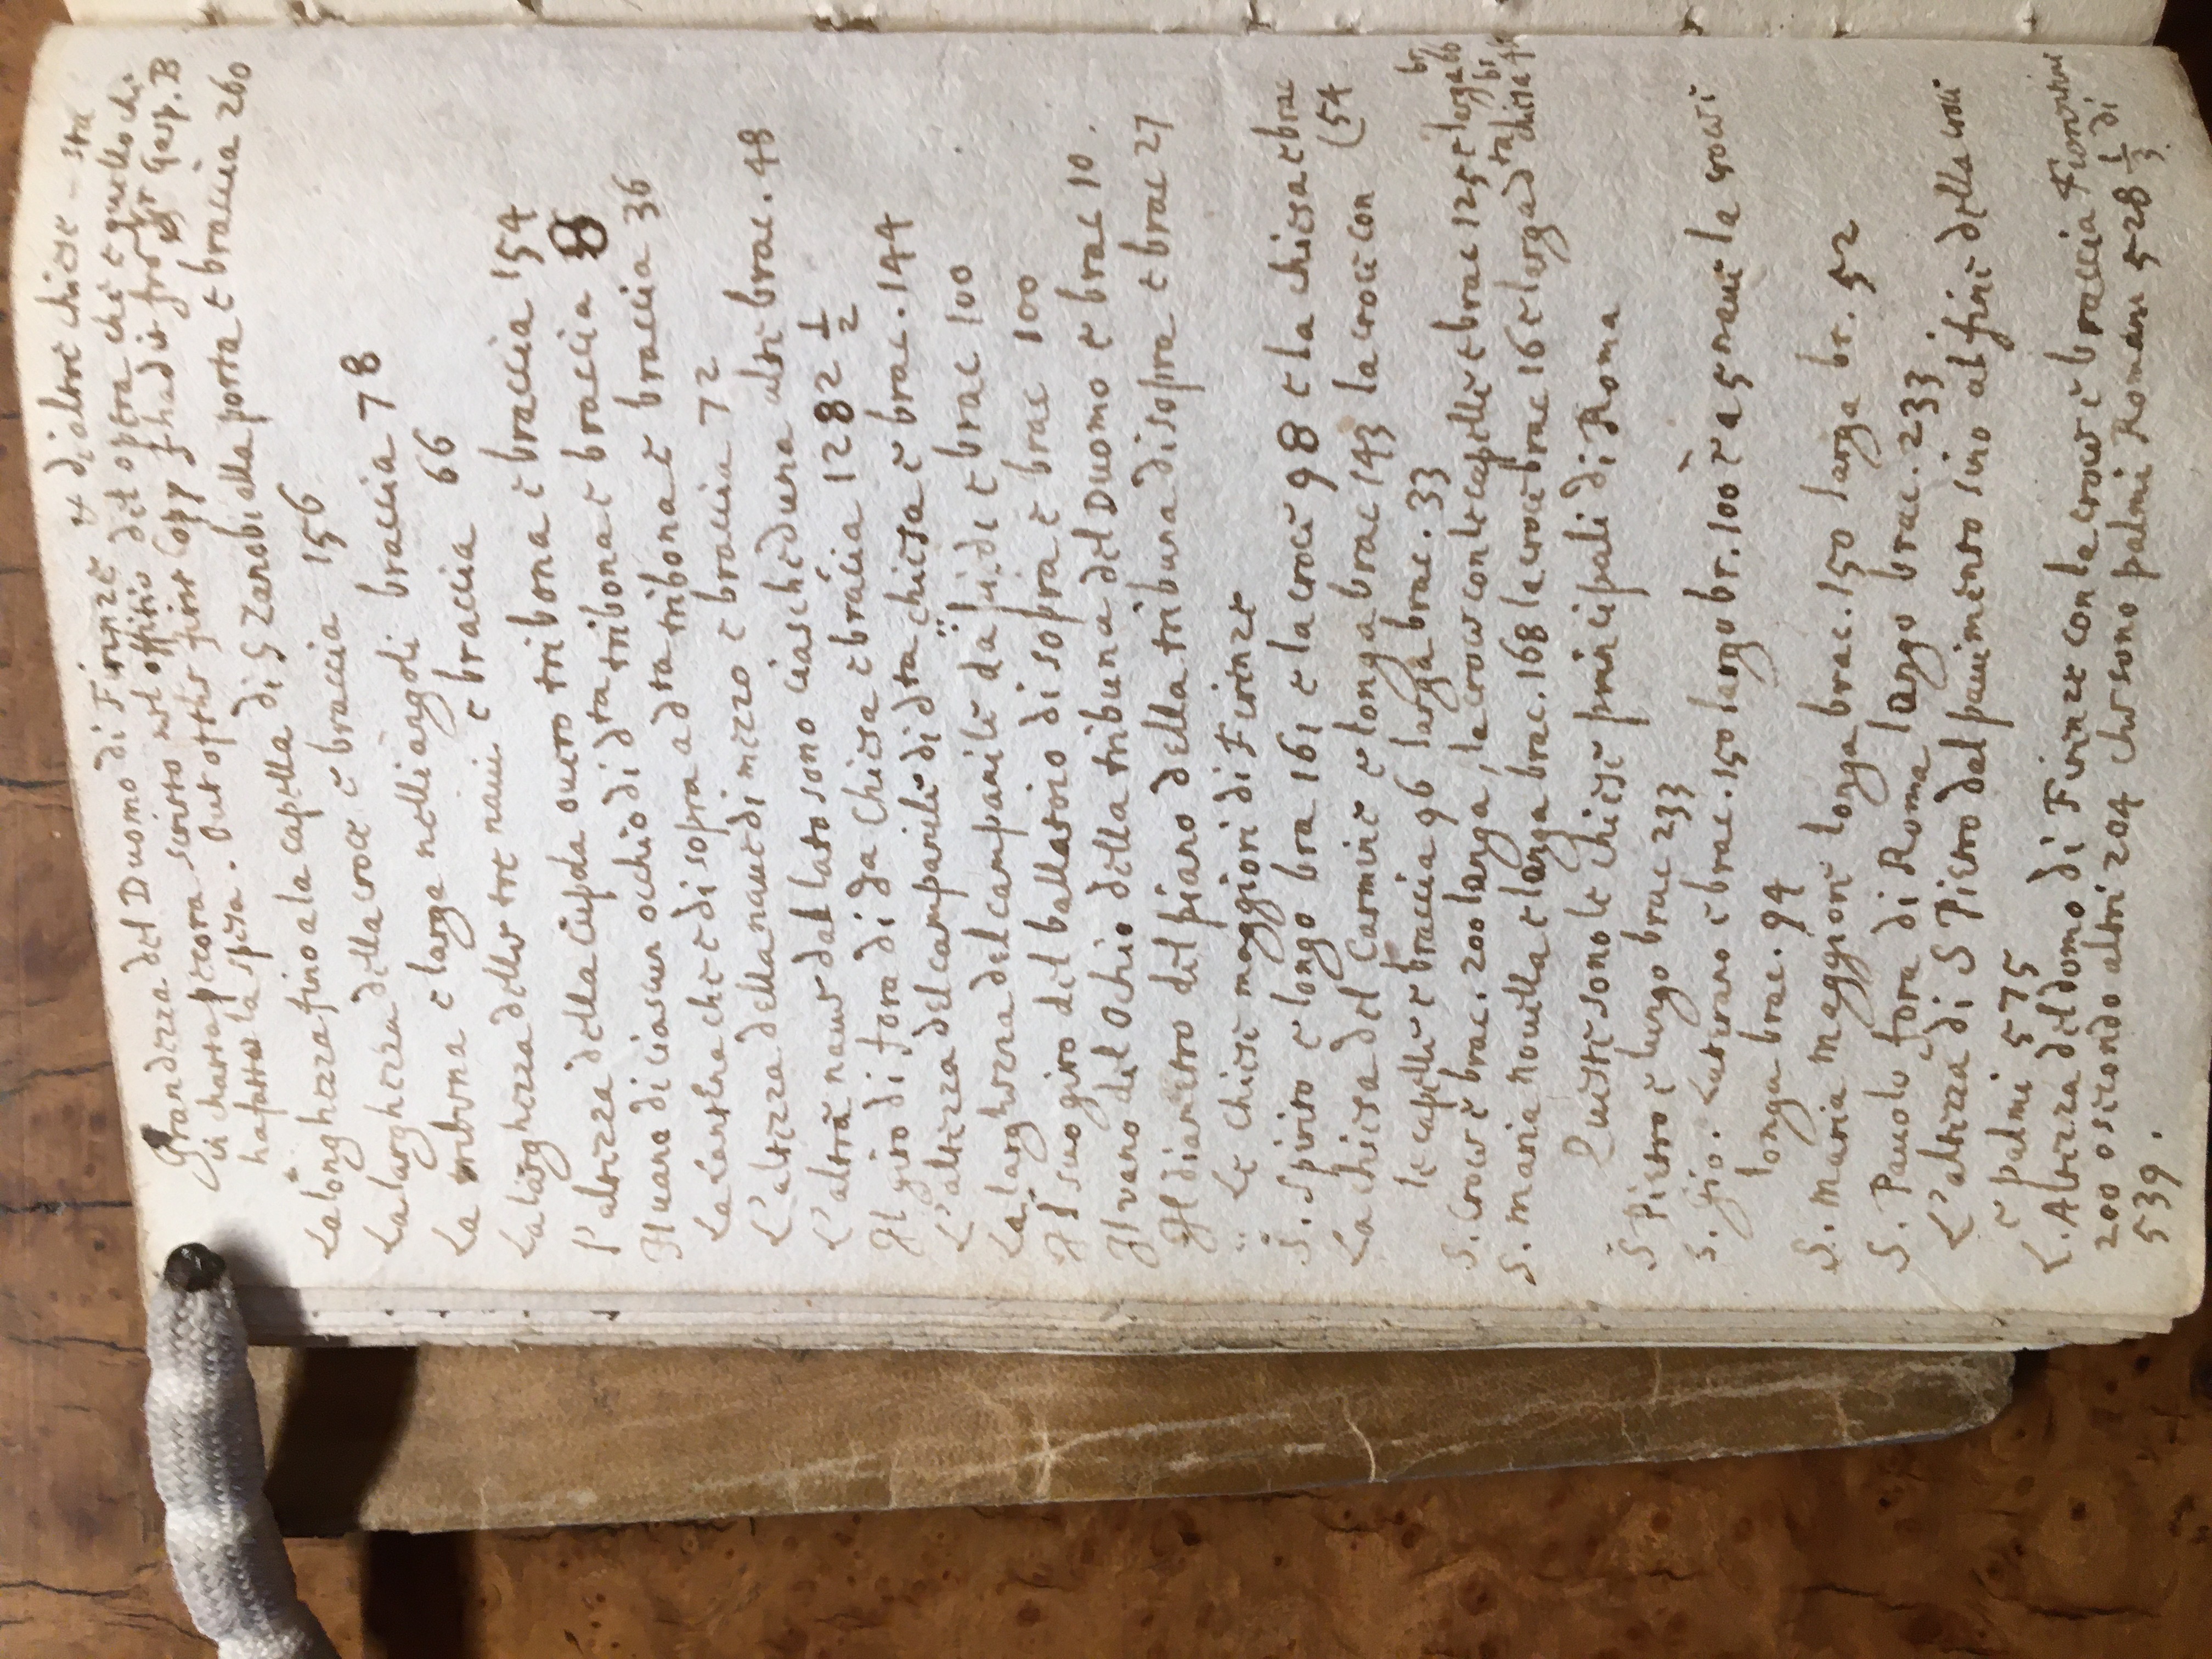 Grandezza del Duomo di Firenze et di altre chiese - sta
in charta pecora scritto nel offitio del opera che e quello che
ha fatto la fr Gasp. B
La longhezza fino a la capella di S Zanobi alla porta e braccia 260
La larghezza della croce e braccia 156
La tribona e larga nelli angoli braccia 78
La larghezza delle tre naui e braccia 66
l'altezza della cupola ouero tribona e braccia 154
Il uano di ciascun occhio di dta tribona e braccia 8
La lanterna che e di sopra a dta tribona e braccia 36
L'altezza della naue di mezzo e braccia 72
L'altra naue dal lato sono ciascheduna alte brac. 48
Il giro di fora di da Chiesa e braccia 1282 1/2
L'altezza del campanile di dta chiesa e brac. 144
La larghezza del campanile da piede e brac 100
Il suo giro del ballatoio di sopra e brac 100
Il vano del Ochio della tribuna del Duomo e brac 10.
Il diametro del piano della tribuna di sopra e brac 27
Le chiese maggiori di Firenze
S. Spirito e longo bra 161 e la croce 98 e la chiesa e brac
La chiesa del Carmine e longa brac 143 la croce con (54
le capelle e braccia 96 larga brac. 33
S. Croce e brac. 200 larga, la croce con le capelle e brac 125 e larga br 66
S. maria nouella e larga brac. 168 la croce brac 16 e larga dta chiesa br
Queste sono le chiese principali di Roma
S Pietro e lungo brac 233
S. Gio. Laterano e brac. 150 largo br. 100 e a 5 naui la croce
longa brac. 94
S. Maria maggiore longa brac. 150 larga br. 52
S. Pauolo fora di Roma largo brac. 233.
L'altezza di S Pietro dal pauimento sino al fine della croce
e palmi 575
L. Altezza del domo di Firenze con la croce e braccia Fiorentini
200 o secondo altri 204 che sono palmi Romani 528 1/3 di
539.